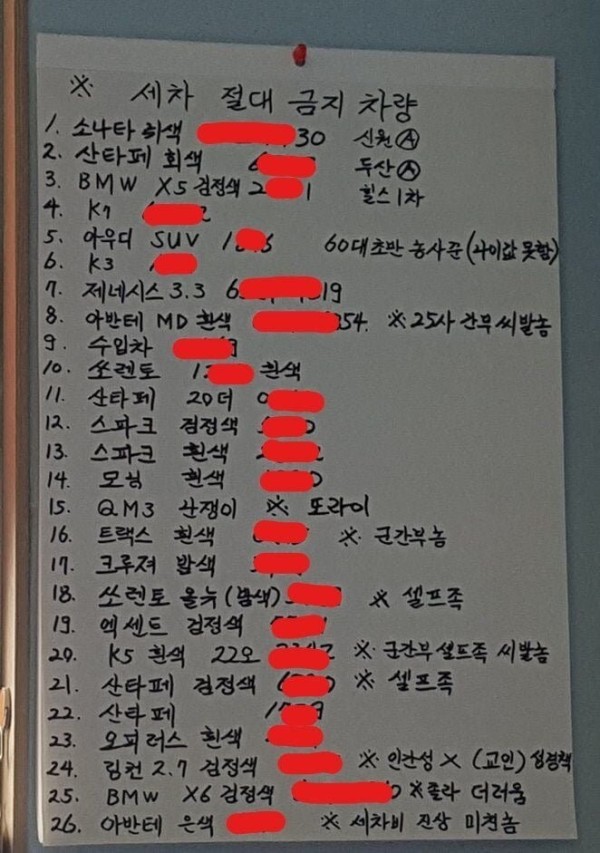 ※ 세차 절대 금지 차량
1. 소나타 회색 30 신원Ⓐ
2. 산타페 회색 6 두산Ⓐ
3. BMW X5 검정색 2 1 힐스1차
4. K7
5. 아우디 SUV 1 6 60대초반 농사꾼(나이값 못함)
6. K3
7. 제네시스 3.3 6 19
8. 아반테 MD 흰색 354. ※25사 간부 씨발놈
9. 수입차
10. 쏘렌토 12 흰색
11. 산타페 20더 0
12. 스파크 검정색
13. 스파크 흰색
14. 모닝 흰색
15. QM3 산쟁이 ※ 또라이
16. 트랙스 흰색 ※ 군간부놈
17. 크루져 밤색
18. 쏘렌토 올뉴(밤색) ※ 셀프족
19. 엑센트 검정색
20. K5 흰색 22오 ※ 군간부 셀프족 씨발놈
21. 산타페 검정색 6 0 ※ 셀프족
22. 산타페 1 9
23. 오피러스 흰색
24. 링컨 2.7 검정색 ※ 인간성 X (교인) 성경책
25. BMW X6 검정색 0 ※졸라 더러움
26. 아반테 은색 ※ 세차비 진상 미친놈